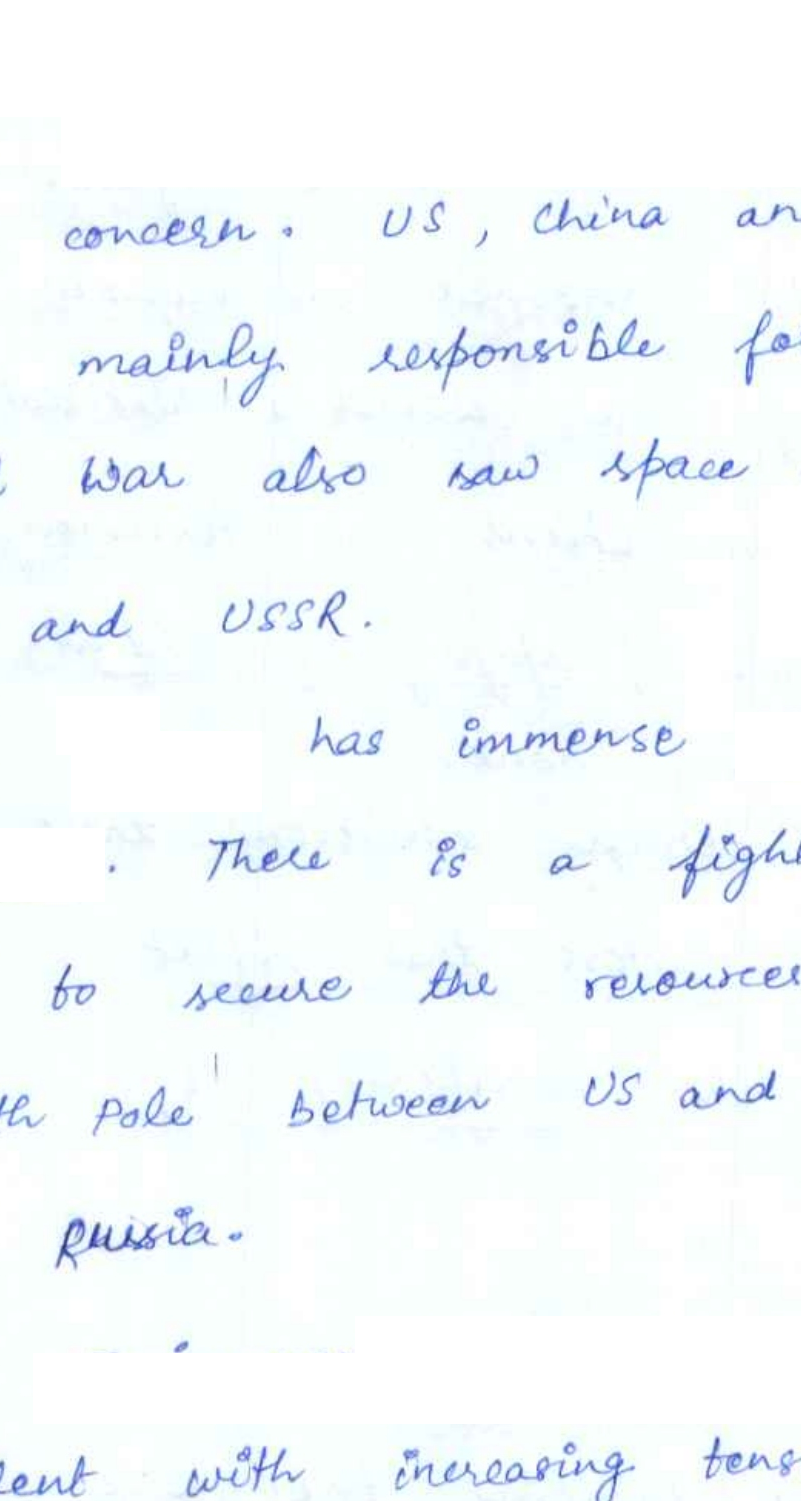 concern. US, China an
mainly responsible fo
War also saw space
and USSR.
has immense
. There is a figh
to secure the resources
th Pole between US and
Russia.
with increasing tens